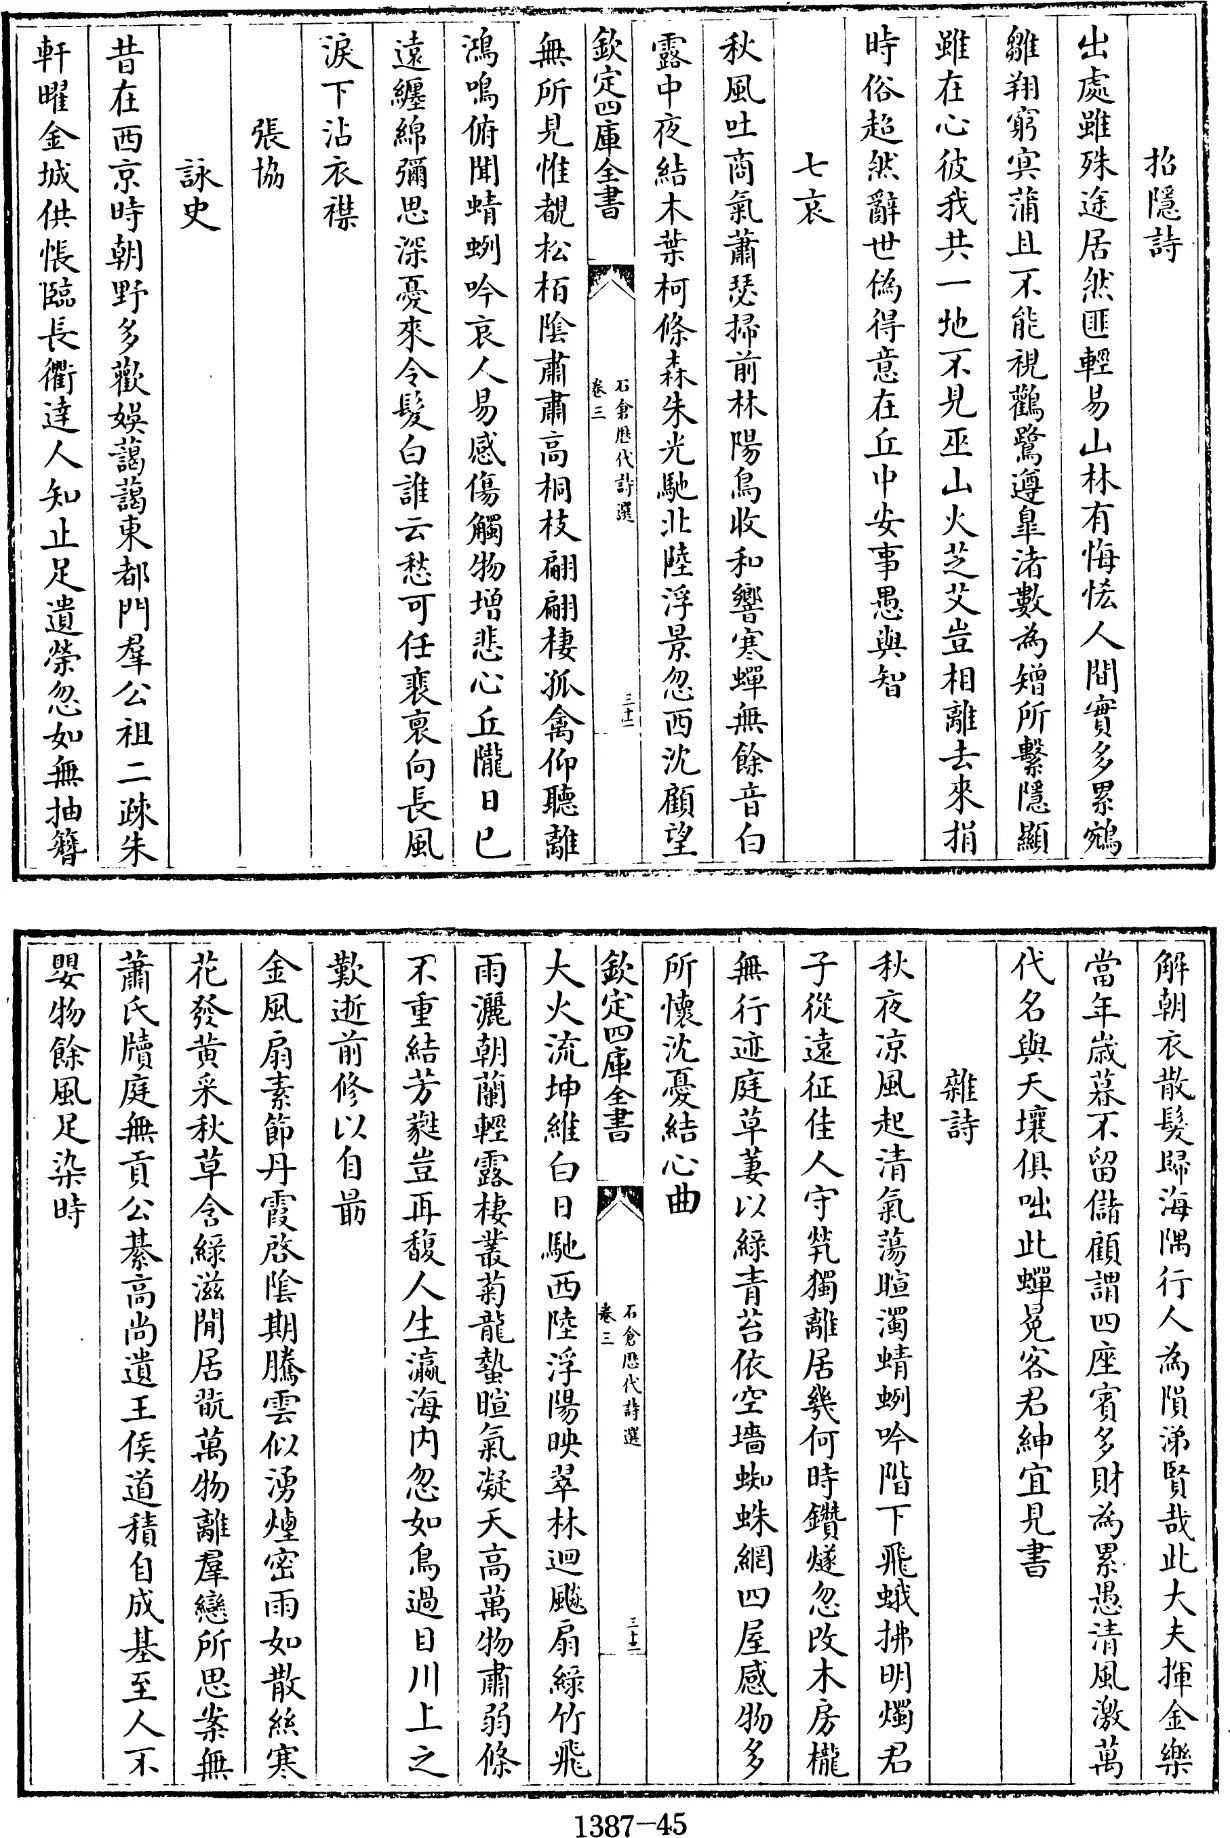 招隱詩
出處雖殊途居然匪輕易山林有悔恡人間實多累鵷
雛翔窮冥蒲且不能視鸛鷺遵臯渚數為矰所繫隱顯
雖在心彼我共一地不見巫山火芝艾豈相離去來捐
時俗超然辭世偽得意在丘中安事愚與智
七哀
秋風吐商氣蕭瑟掃前林陽鳥收和響寒蟬無餘音白
露中夜結木葉柯條森朱光馳北陸浮景忽西沈顧望
欽定四庫全書
石倉歷代詩選
卷三
三十一
無所見惟覩松栢陰肅肅高桐枝翩翩棲孤禽仰聽離
鴻鳴俯聞蜻蛚吟哀人易感傷觸物增悲心丘隴日已
遠纏綿彌思深憂來令髮白誰云愁可任裵裒向長風
淚下沾衣襟
張協
詠史
昔在西京時朝野多歡娛藹藹東都門羣公祖二疎朱
軒曜金城供帳臨長衢達人知止足遺榮忽如無抽簪
解朝衣散髮歸海隅行人為隕涕賢哉此大夫揮金樂
當年歲暮不留儲顧謂四座賓多財為累愚清風激萬
代名與天壤俱咄此蟬冕客君紳宜見書
雜詩
秋夜凉風起清氣蕩暄濁蜻蛚吟階下飛蛾拂明燭君
子從遠征佳人守煢獨離居幾何時鑽燧忽改木房櫳
無行迹庭草萋以綠青苔依空墻蜘蛛網四屋感物多
所懷沈憂結心曲
欽定四庫全書
石倉歷代詩選
卷三
三十二
大火流坤維白日馳西陸浮陽映翠林迴飈扇綠竹飛
雨灑朝蘭輕露棲叢菊龍蟄暄氣凝天高萬物肅弱條
不重結芳蕤豈再馥人生瀛海内忽如鳥過目川上之
歎逝前修以自朂
金風扇素節丹霞啓陰期騰雲似湧煙密雨如散絲寒
花發黄采秋草含綠滋閒居翫萬物離羣戀所思案無
蕭氏牘庭無貢公綦高尚遺王侯道積自成基至人不
嬰物餘風足染時
1387-45